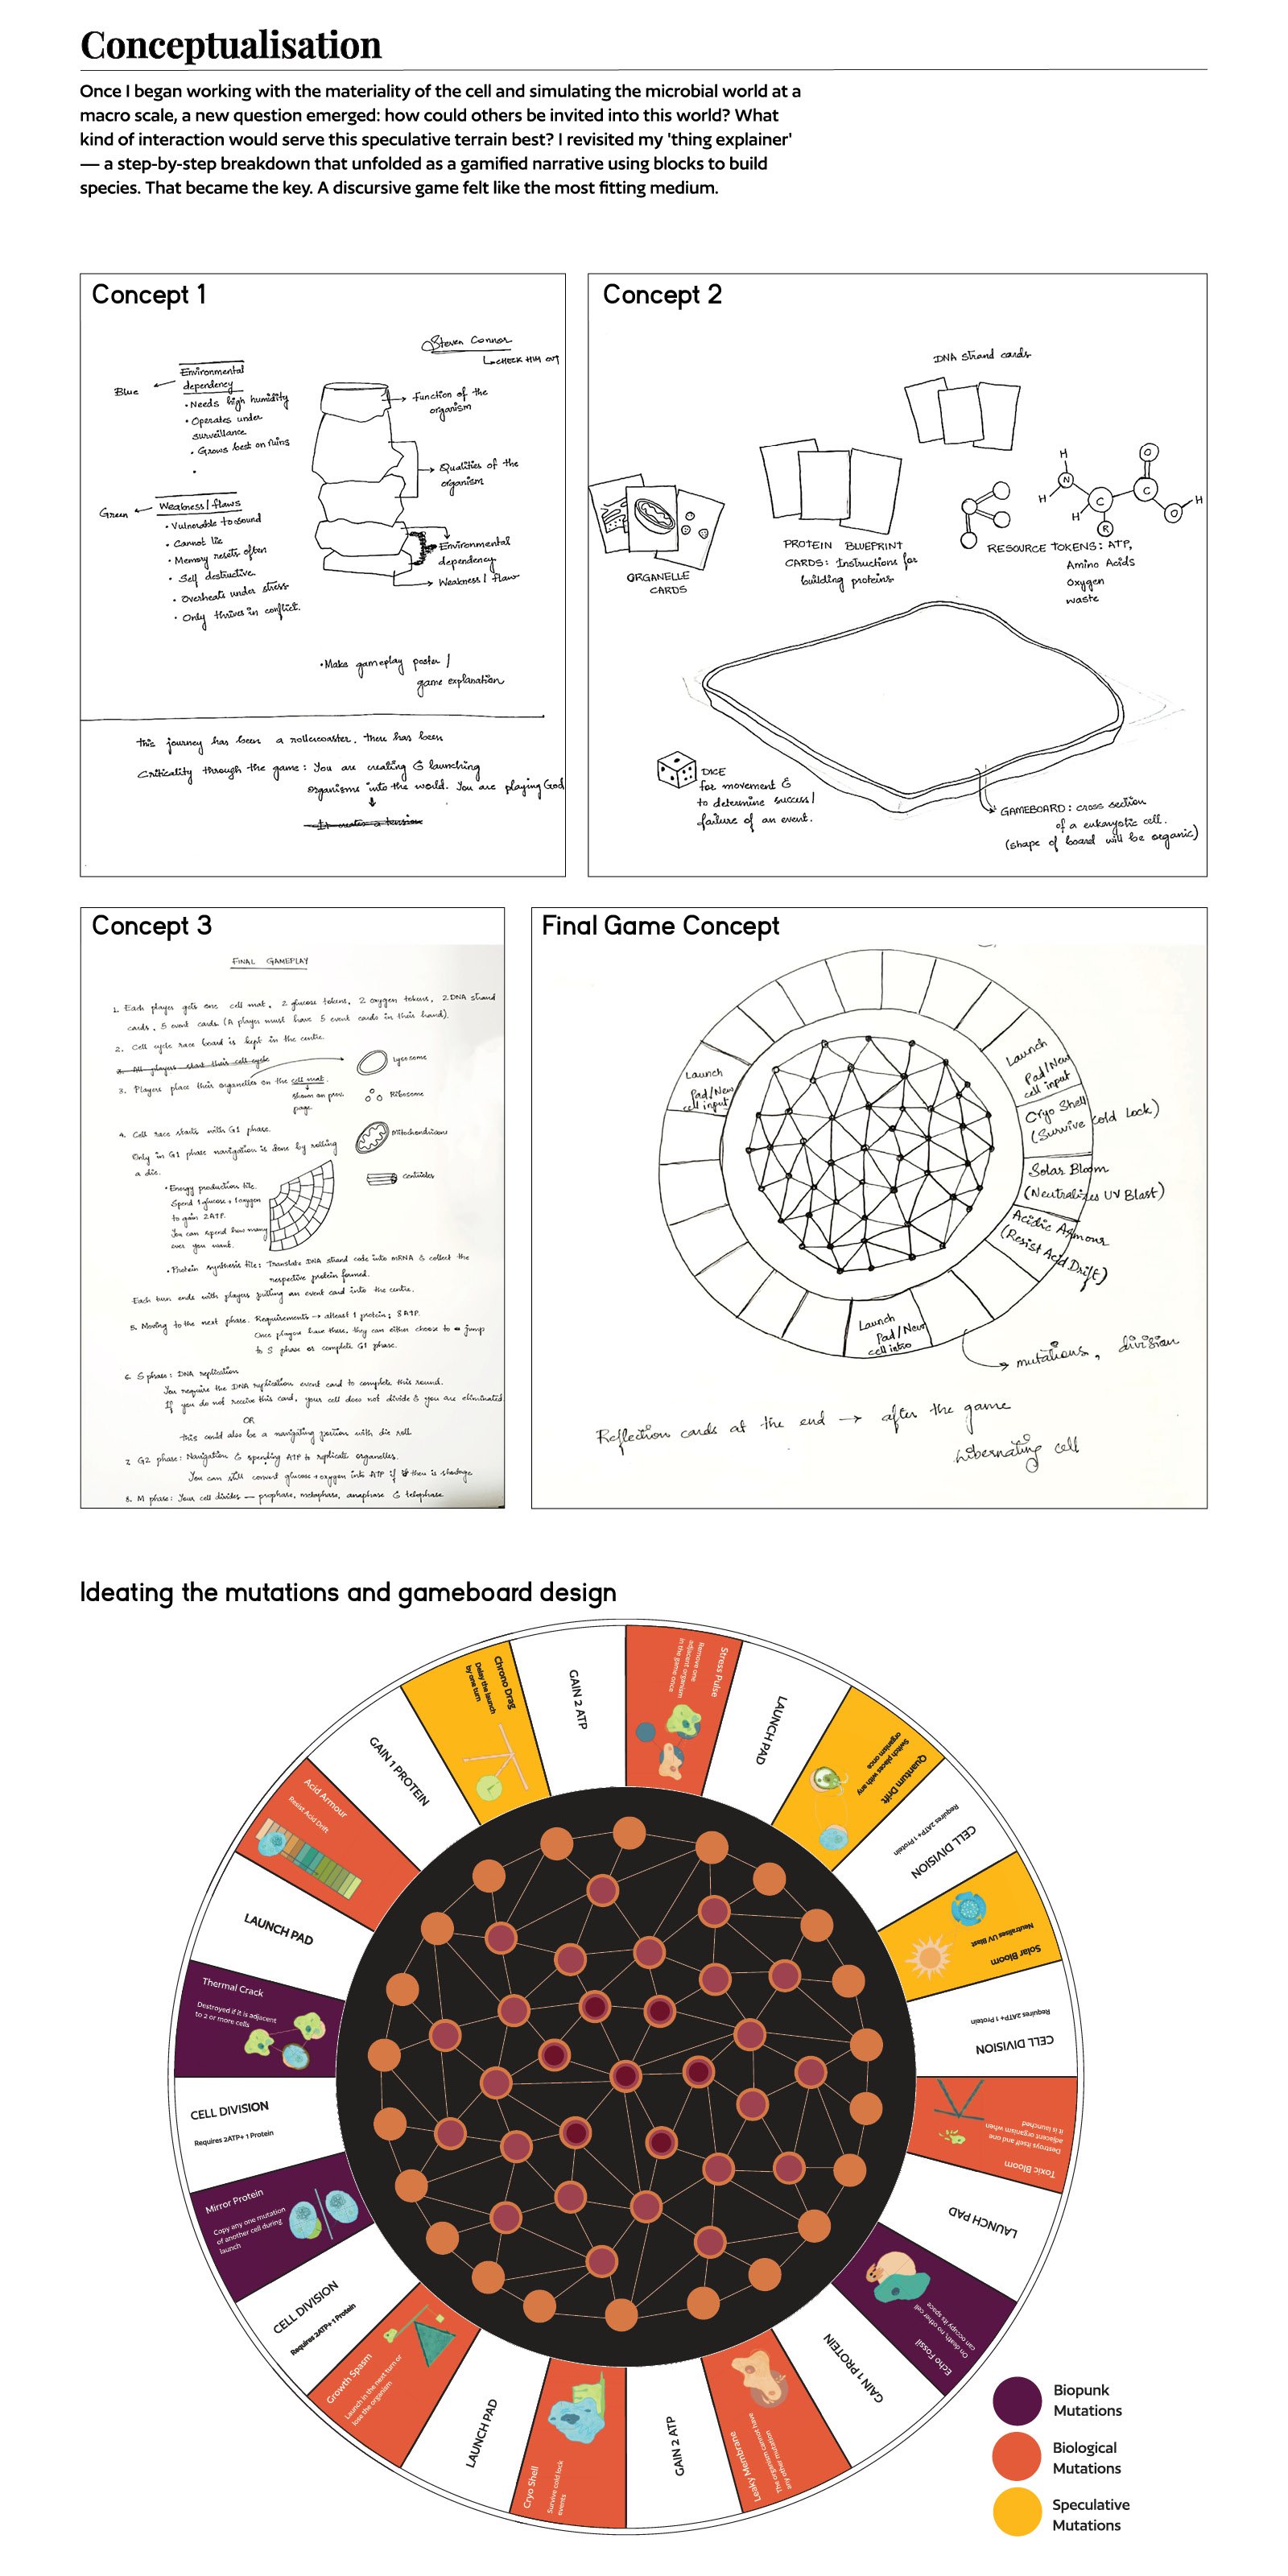 Conceptualisation
Once I began working with the materiality of the cell and simulating the microbial world at a
macro scale, a new question emerged: how could others be invited into this world? What
kind of interaction would serve this speculative terrain best? I revisited my 'thing explainer'
— a step-by-step breakdown that unfolded as a gamified narrative using blocks to build
species. That became the key. A discursive game felt like the most fitting medium.
Concept 1
Steven Connor
CHECK HIM OUT
Blue
Environmental
dependency
• Needs high humidity
• Operates under
surveillance
• Grows best on ruins
•
Green
Weakness / flaws
• Vulnerable to sound
• Cannot lie
• Memory resets often
• Self destructive
• Overheats under stress
• Only thrives in conflict.
Function of the
organism
Qualities of the
organism
Environmental
dependency
Weakness / flaw
• Make gameplay poster /
game explanation
this journey has been a rollercoaster. there has been
Criticality through the game: You are creating & launching
organisms into the world. You are playing God
It creates a tension
Concept 2
DNA strand cards
ORGANELLE
CARDS
PROTEIN BLUEPRINT
CARDS: Instructions for
building proteins
H
N
H
H
C
R
C
O
O
H
RESOURCE TOKENS: ATP,
Amino Acids
Oxygen
waste
DICE
for movement &
to determine success/
failure of an event.
GAMEBOARD: cross section
of a eukaryotic cell.
(shape of board will be organic)
Concept 3
FINAL GAMEPLAY
1. Each player gets one cell mat, 2 glucose tokens, 2 oxygen tokens, 2 DNA strand
cards, 5 event cards (A player must have 5 event cards in their hand).
2. Cell cycle race board is kept in the centre.
3. All players start their cell cycle
3. Players place their organelles on the cell mat.
shown on prev.
page.
Lysosome
Ribosome
Mitochondrions
Centrioles
4. Cell race starts with G1 phase.
Only in G1 phase navigation is done by rolling
a die.
• Energy production tile:
Spend 1 glucose + 1 oxygen
to gain 2ATP.
You can spend how many
ever you want.
• Protein synthesis tile: Translate DNA strand code into mRNA & collect the
respective protein formed.
Each turn ends with players putting an event card into the centre.
5. Moving to the next phase. Requirements → atleast 1 protein; 8 ATP.
Once players have these, they can either choose to jump
to S phase or complete G1 phase.
6. S phase: DNA replication
You require the DNA replication event card to complete this round.
If you do not receive this card, your cell does not divide & you are eliminated
OR
this could also be a navigating portion with die roll
7. G2 phase: Navigation & spending ATP to replicate organelles.
You can still convert glucose + oxygen into ATP if there is shortage
8. M phase: Your cell divides — prophase, metaphase, anaphase & telophase.
Final Game Concept
Launch
Pad/New
cell input
Launch
Pad/New
cell input
Cryo Shell
(Survive Cold Lock)
Solar Bloom
(Neutralizes UV Blast)
Acidic Armour
(Resist Acid Drift)
Launch
Pad/New
cell intro
mutations, division
Reflection cards at the end → after the game
hibernating cell
Ideating the mutations and gameboard design
Stress Pulse
Remove one
adjacent organism
in the game once
LAUNCH PAD
Quantum Drift
Switch places with any
organism once
CELL DIVISION
Requires 2ATP+ 1 Protein
Solar Bloom
Neutralises UV Blast
CELL DIVISION
Requires 2ATP+ 1 Protein
Toxic Bloom
Destroys itself and one
adjacent organism when
it is launched
LAUNCH PAD
Echo Fossil
On death, no other cell
can occupy its space
GAIN 1 PROTEIN
Leaky Membrane
The organism cannot have
any other mutation
GAIN 2 ATP
Cryo Shell
Survive cold lock
events
LAUNCH PAD
Growth Spasm
Launch in the next turn or
lose the organism
CELL DIVISION
Requires 2ATP+ 1 Protein
Mirror Protein
Copy any one mutation
of another cell during
launch
CELL DIVISION
Requires 2ATP+ 1 Protein
Thermal Crack
Destroyed if it is adjacent
to 2 or more cells
LAUNCH PAD
Acid Armour
Resist Acid Drift
GAIN 1 PROTEIN
Chrono Drag
Delay the launch
by one turn
GAIN 2 ATP
Biopunk
Mutations
Biological
Mutations
Speculative
Mutations